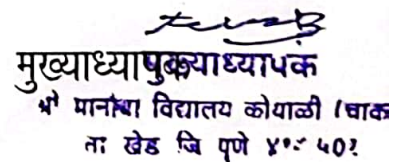 मुख्याध्यापक
मुख्याध्यापक
श्री विद्यालय कोयाळी (चाक
ता. खेड जि पुणे ४१०५०१